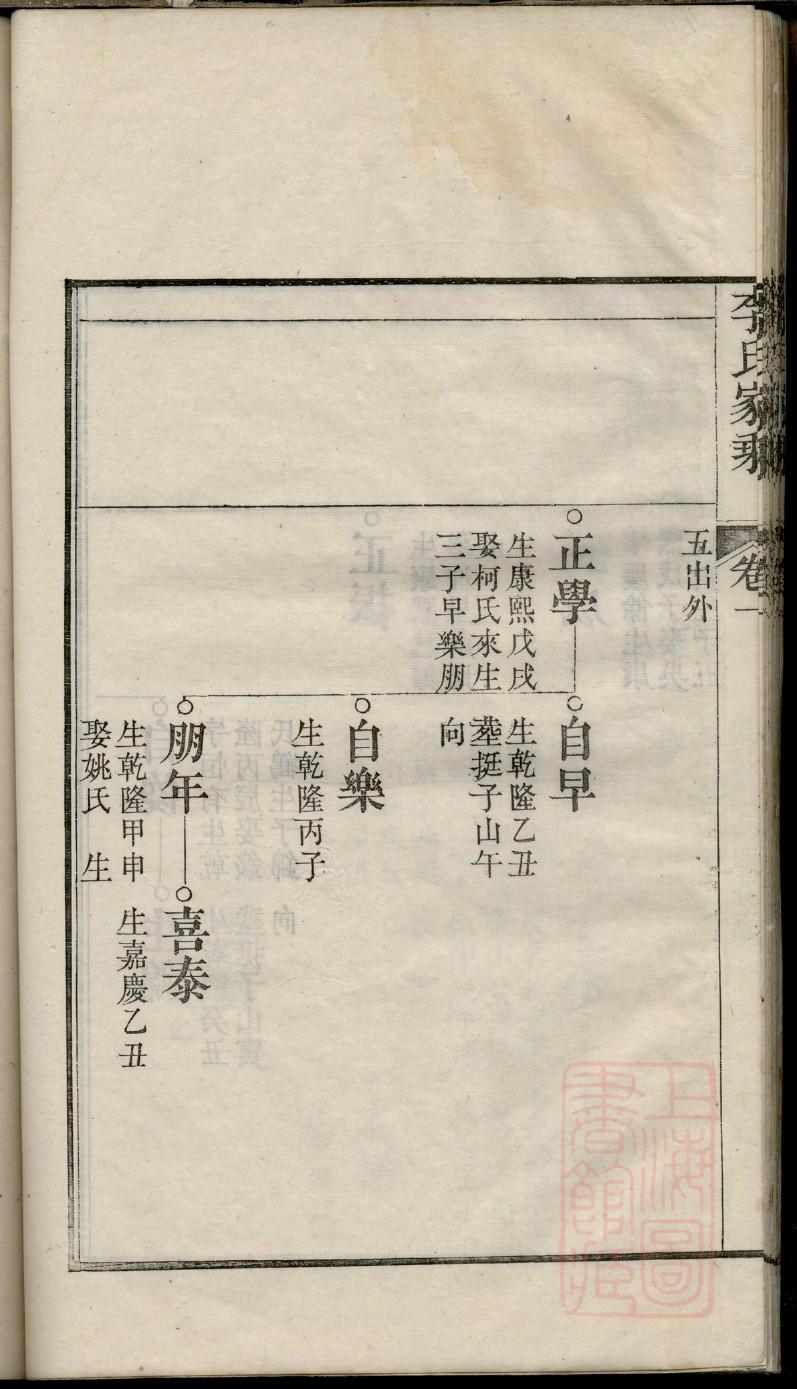 李氏家乘
卷一
五出外
正學
生康熙戊戌
娶柯氏來生
三子早樂朋
自早
生乾隆乙丑
塟挺子山午
向
自樂
生乾隆丙子
朋年
生乾隆甲申
娶姚氏 生
喜泰
生嘉慶乙丑
上海圖
書館藏